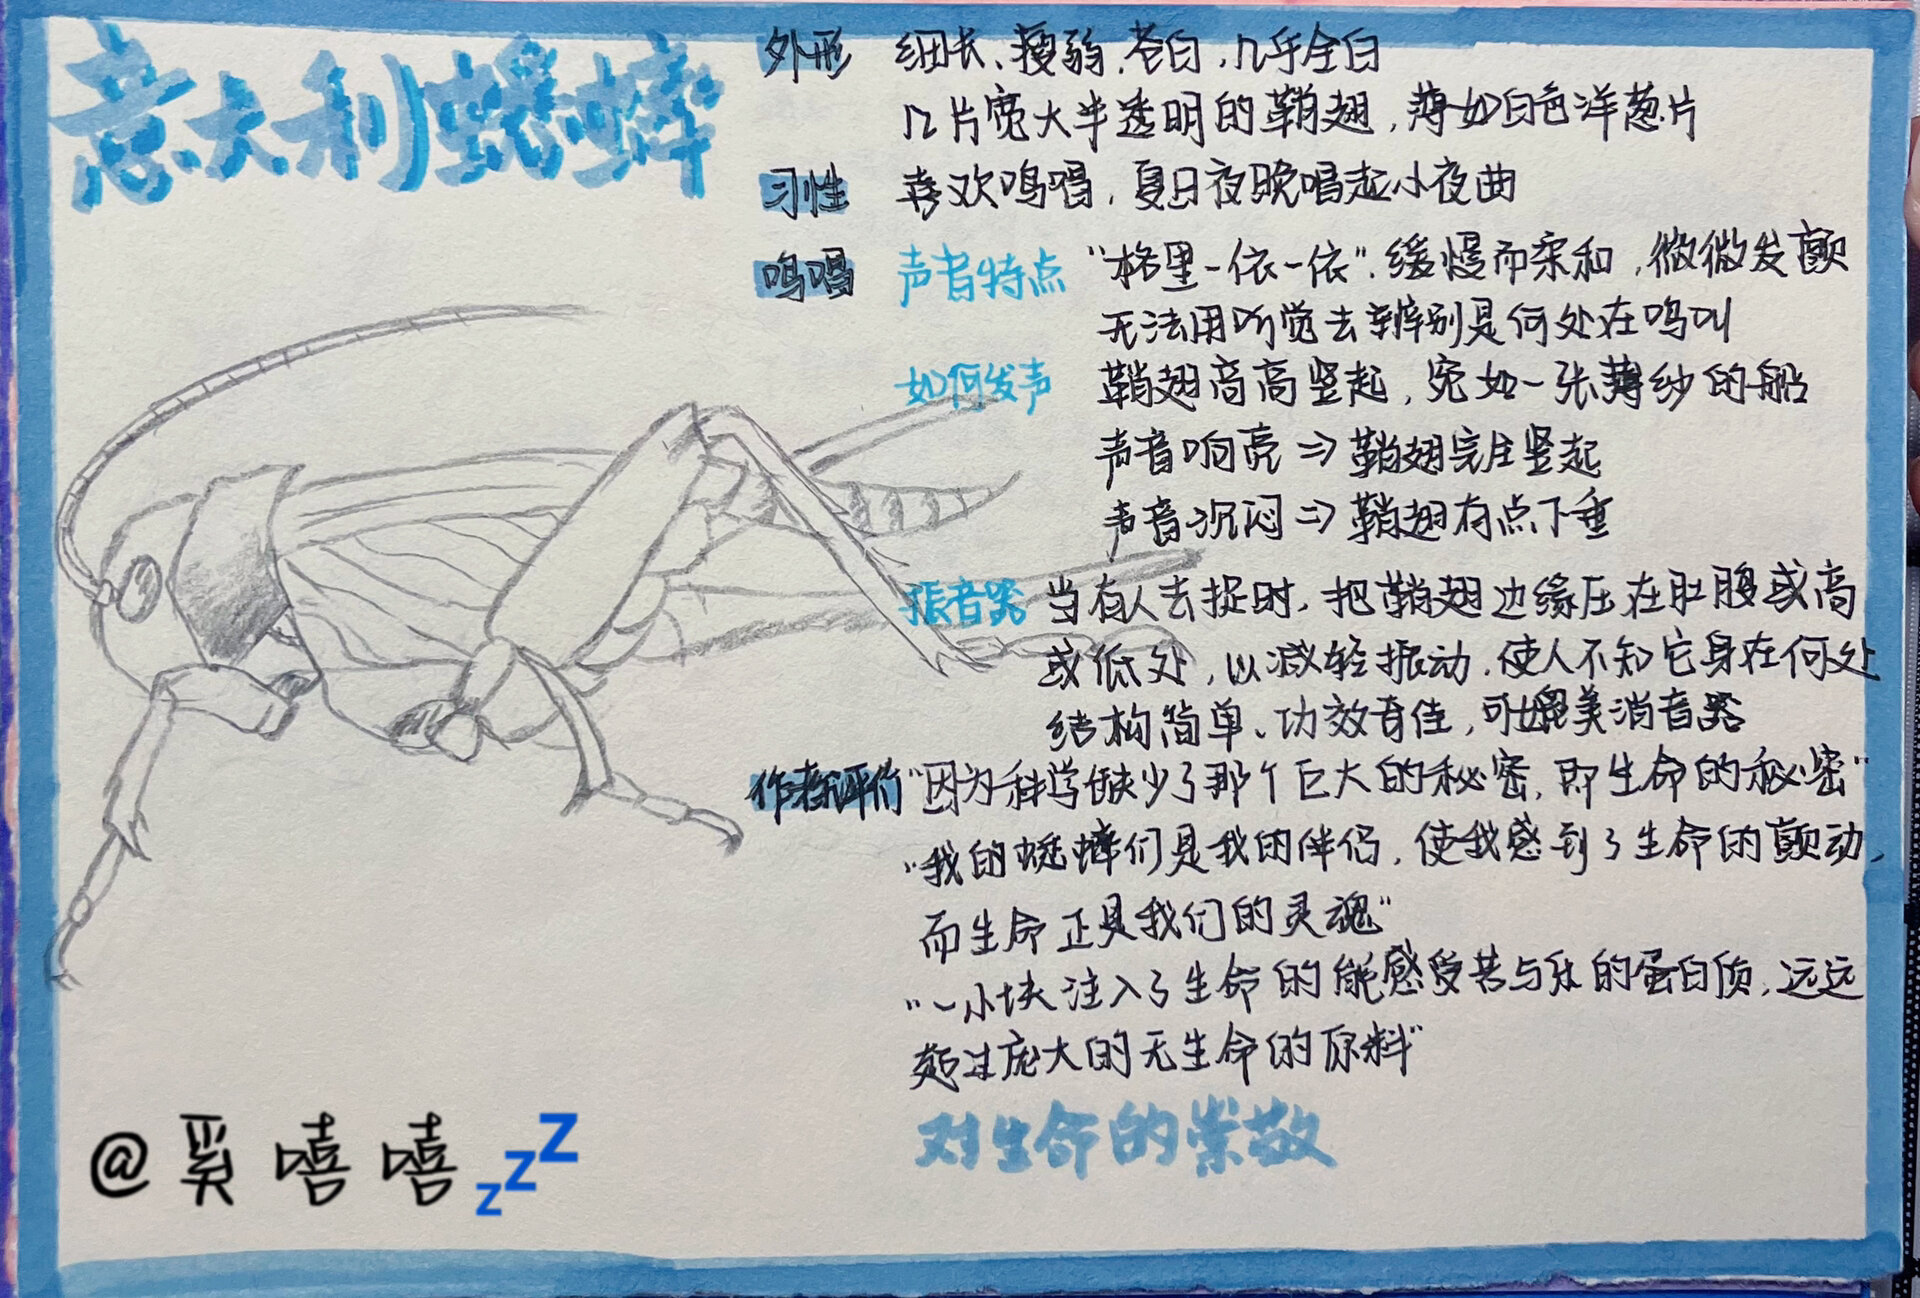 意大利蟋蟀
外形 细长、瘦弱、苍白,几乎全白
几片宽大半透明的鞘翅,薄如白色洋葱片
习性 喜欢鸣唱,夏日夜晚唱起小夜曲
鸣唱 声音特点 "格里-依-依",缓慢而柔和,微微发颤
无法用听觉去辨别是何处在鸣叫
如何发声 鞘翅高高竖起,宛如一张薄纱的船
声音响亮⇒鞘翅完全竖起
声音沉闷⇒鞘翅有点下垂
張音器 当有人去捉时,把鞘翅边缘压在肚腹或高
或低处,以减轻振动,使人不知它身在何处
结构简单、功效奇佳,可媲美消音器
作者评价 "因为科学缺少了那个巨大的秘密,即生命的秘密"
"我的蟋蟀们是我的伴侣,使我感到了生命的颤动,
而生命正是我们的灵魂"
"一小块注入了生命的能感受苦与乐的蛋白质,远远
超过庞大的无生命的原料"
对生命的崇敬
@奚嘻嘻💤